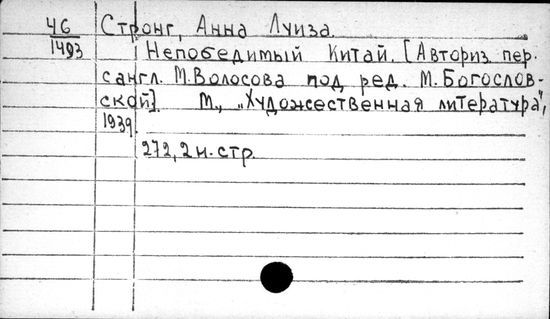 46 Стронг, Анна Луиза.
1493 Непобедимый Китай. [Авториз. пер.
с англ. М. Волосова под ред. М. Богослов-
ской]. М., „Художественная литература",
1939.
272, 2 н. стр.